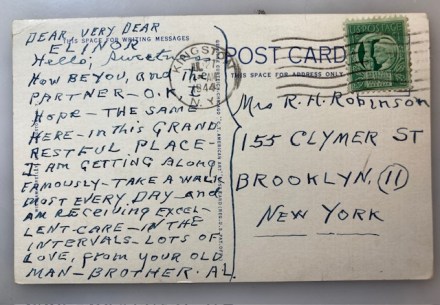 DEAR, VERY DEAR
THIS SPACE FOR WRITING MESSAGES
ELINOR
Hello, Sweetness
HOW BE YOU, and the
PARTNER-O.K. I
HOPE-THE SAME
HERE-IN THIS GRAND
RESTFUL PLACE-
I AM GETTING ALONG
FAMOUSLY-TAKE A WALK
MOST EVERY DAY-and
AM RECEIVING EXCEL-
LENT-CARE-IN THE
INTERVALS-LOTS OF
LOVE, from YOUR OLD
MAN-BROTHER. AL.
KINGSTON
1944
N.Y.
POST CARD
THIS SPACE FOR ADDRESS ONLY
U.S. POSTAGE
1¢
Mrs R. H. Robinson
155 CLYMER ST
BROOKLYN, (11)
NEW YORK